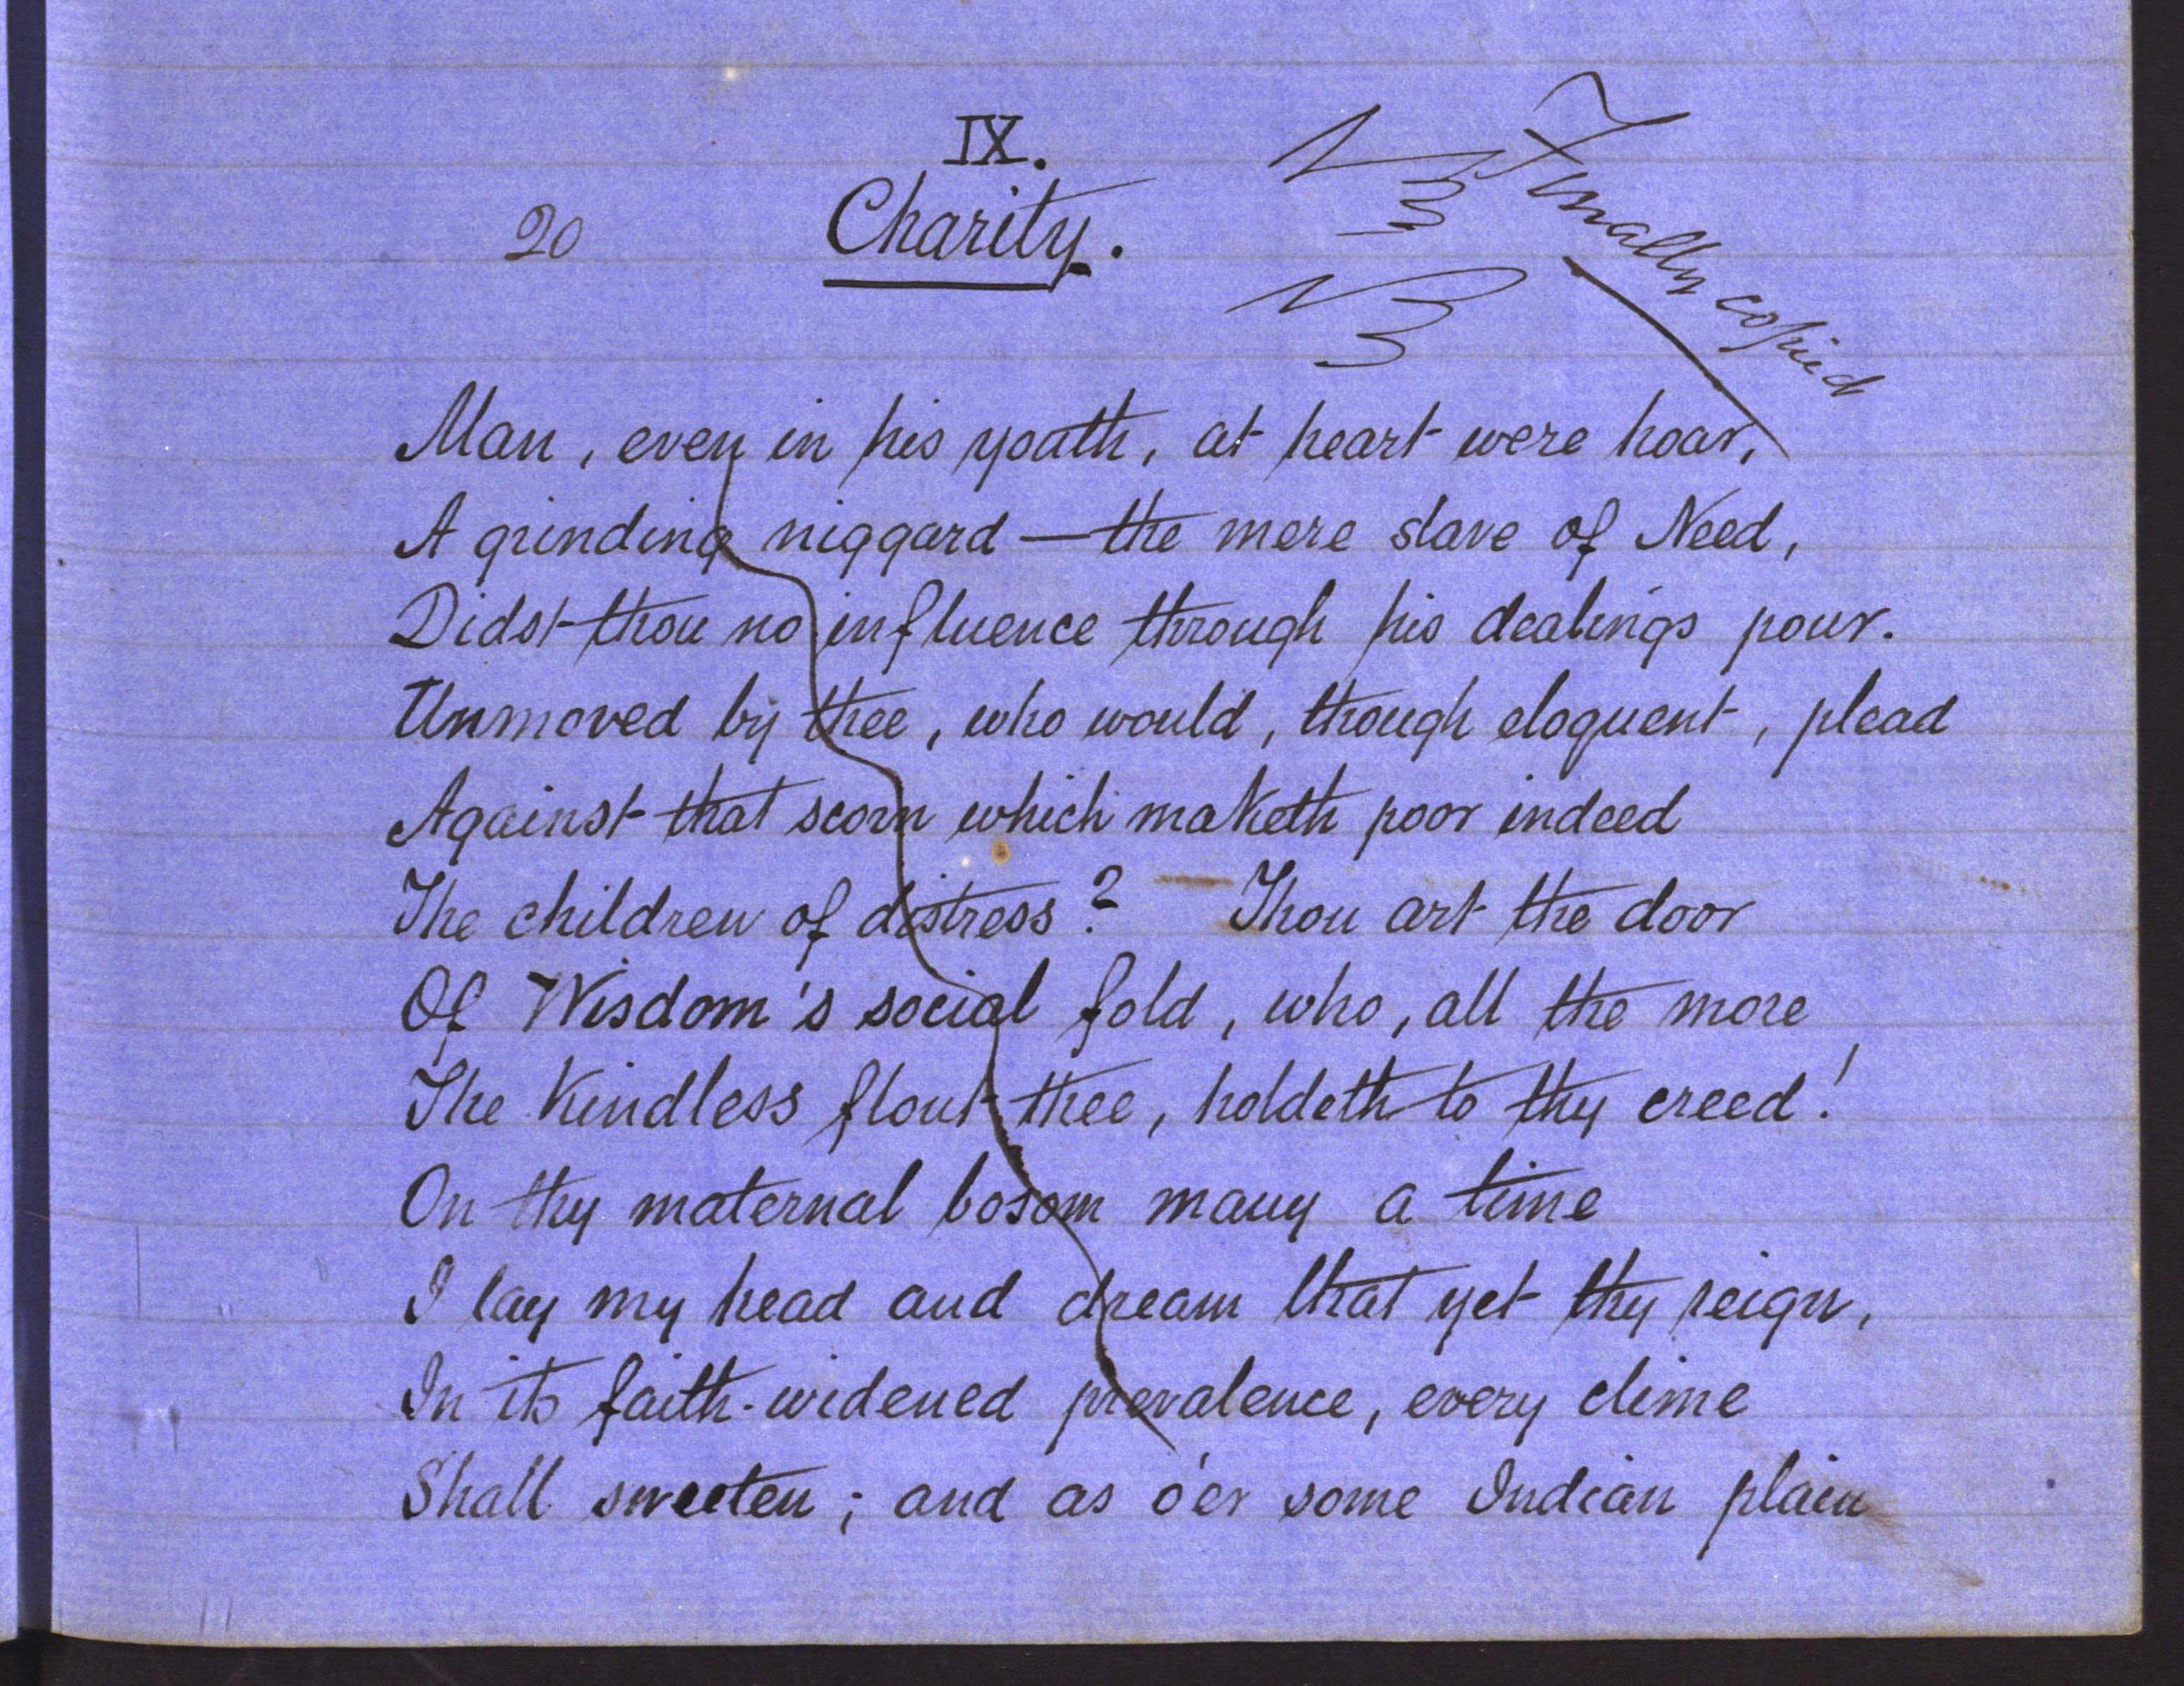 IX.
20 Charity.
NB
NB
Finally copied
Man, even in his youth, at heart were hoar,
A grinding niggard — the mere slave of Need,
Didst thou no influence through his dealings pour.
Unmoved by thee, who would, though eloquent, plead
Against that scorn which maketh poor indeed
The children of distress? Thou art the door
Of Wisdom's social fold, who, all the more
The Kindless flout thee, holdeth to thy creed!
On thy maternal bosom many a time
I lay my head and dream that yet thy reign,
In its faith-widened prevalence, every clime
Shall sweeten; and as o'er some Indian plain